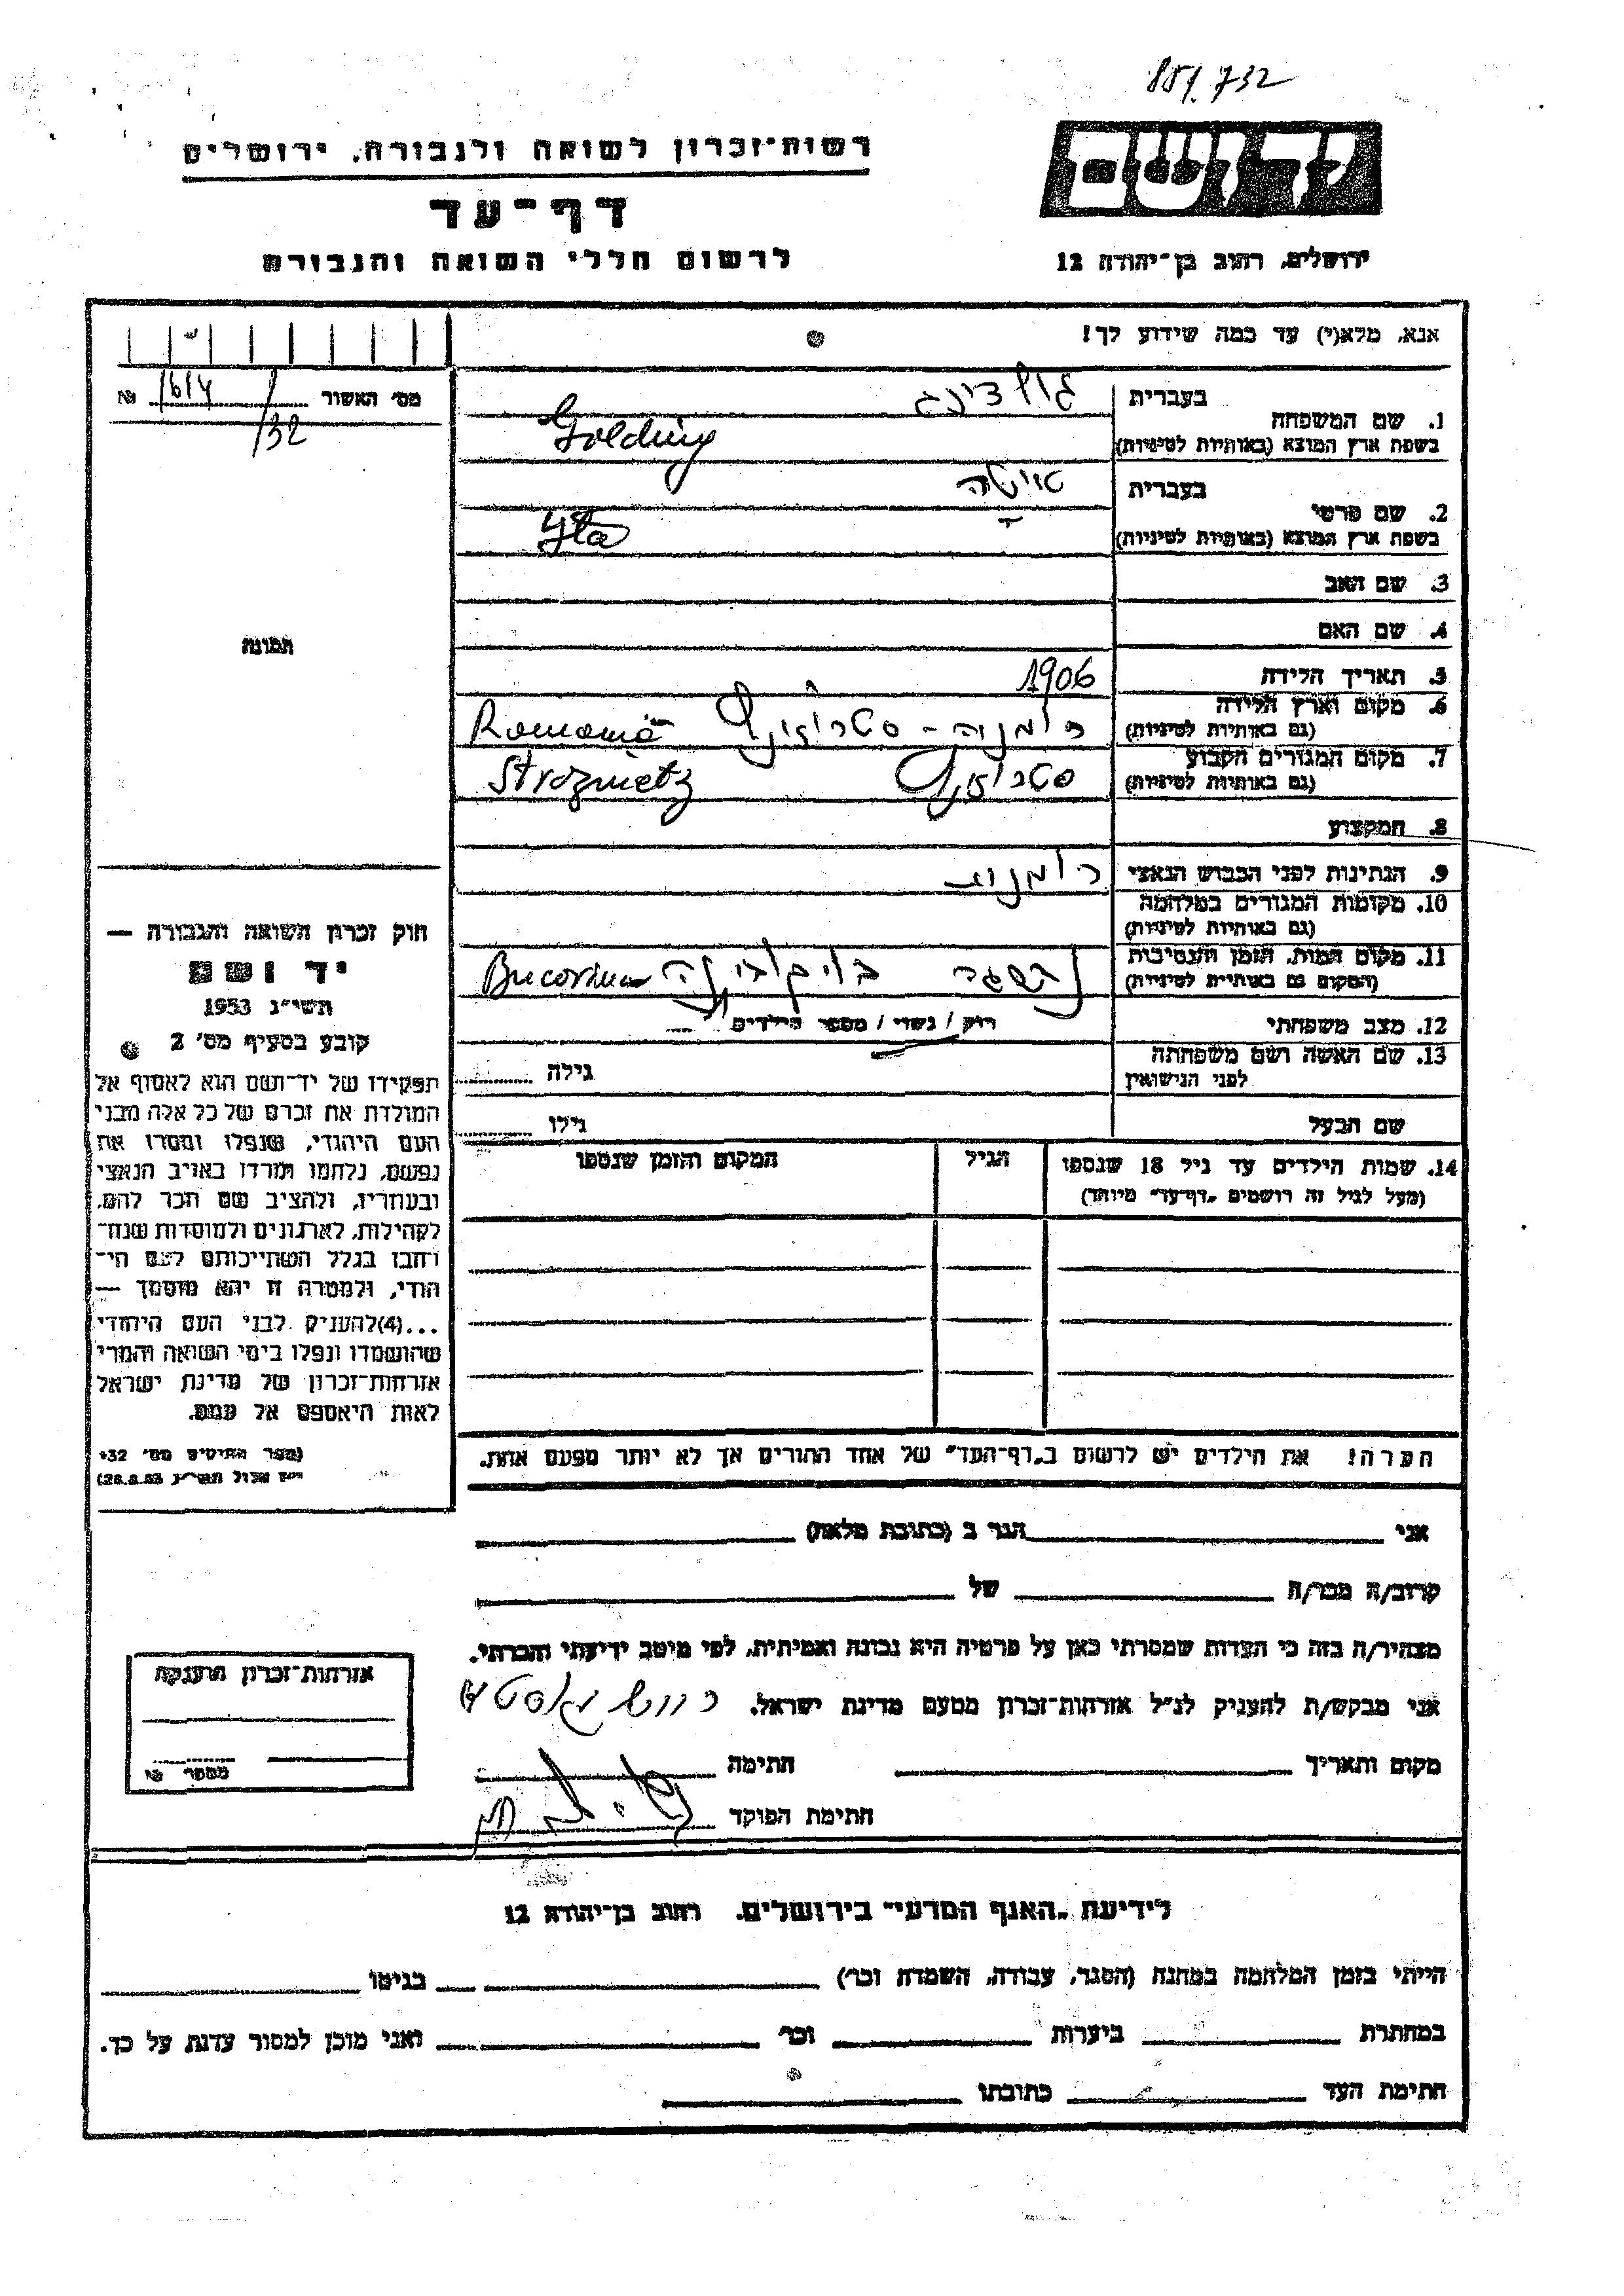 851.732
רשות־זכרון לשואה ולגבורה, ירושלים
דף־עד
לרשום חללי השואה והגבורה
יד ושם
ירושלים, רחוב בן־יהודה 12
אנא, מלא(י) עד כמה שידוע לך!
מס׳ האשור № 1614/132
1. שם המשפחה בעברית גולדינג
בשפת ארץ המוצא (באותיות לטיניות) Golding
2. שם פרטי בעברית איטה
בשפת ארץ המוצא (באותיות לטיניות) Yta
3. שם האב
4. שם האם
תמונה
5. תאריך הלידה 1906
6. מקום וארץ הלידה רומניה - סטרוז'ניץ Romania
(גם באותיות לטיניות)
7. מקום המגורים הקבוע סטרוז'ניץ Stroznietz
(גם באותיות לטיניות)
8. המקצוע
9. הנתינות לפני הכבוש הנאצי רומנית
10. מקומות המגורים במלחמה
(גם באותיות לטיניות)
11. מקום המות, הזמן והנסיבות בוקובינה Bucovina
(המקום גם באותיות לטיניות)
12. מצב משפחתי רוק / נשוי / מספר הילדים
13. שם האשה ושם משפחתה גילה
לפני הנישואין
שם הבעל גילו
14. שמות הילדים עד גיל 18 שנספו הגיל המקום והזמן שנספו
(מעל לגיל זה רושמים „דף־עד״ מיוחד)
חוק זכרון השואה והגבורה —
יד ושם
תשי״ג 1953
קובע בסעיף מס׳ 2
תפקידו של יד־ושם הוא לאסוף אל
המולדת את זכרם של כל אלה מבני
העם היהודי, שנפלו ומסרו את
נפשם, נלחמו ומרדו באויב הנאצי
ובעוזריו, ולהציב שם וזכר להם,
לקהילות, לארגונים ולמוסדות שנח־
רחבו בגלל השתייכותם לעם הי־
הודי, ולמטרה זו יהא מוסמך —
...(4) להעניק לבני העם היהודי
שהושמדו ונפלו בימי השואה והמרי
אזרחות־זכרון של מדינת ישראל
לאות היאספם אל עמם.
(ספר החוקים מס׳ 132
י״ז אלול תשי״ג 28.8.53)
הערה! את הילדים יש לרשום ב„דף־העד״ של אחד ההורים אך לא יותר מפעם אחת.
אני הגר ב (כתובת מלאה)
קרוב/ה מכר/ה של
מצהיר/ה בזה כי העדות שמסרתי כאן על פרטיה היא נכונה ואמיתית, לפי מיטב ידיעתי והכרתי.
אני מבקש/ת להעניק לנ״ל אזרחות־זכרון מטעם מדינת ישראל.
מקום ותאריך חתימה
חתימת הפוקד
אזרחות־זכרון הוענקה
מספר
לידיעת „האגף המדעי״ בירושלים. רחוב בן־יהודה 12
הייתי בזמן המלחמה במחנה (הסגר, עבודה, השמדה וכר׳) בגיטו
במחתרת ביערות וכר׳ ואני מוכן למסור עדות על כך.
חתימת העד כתובתו